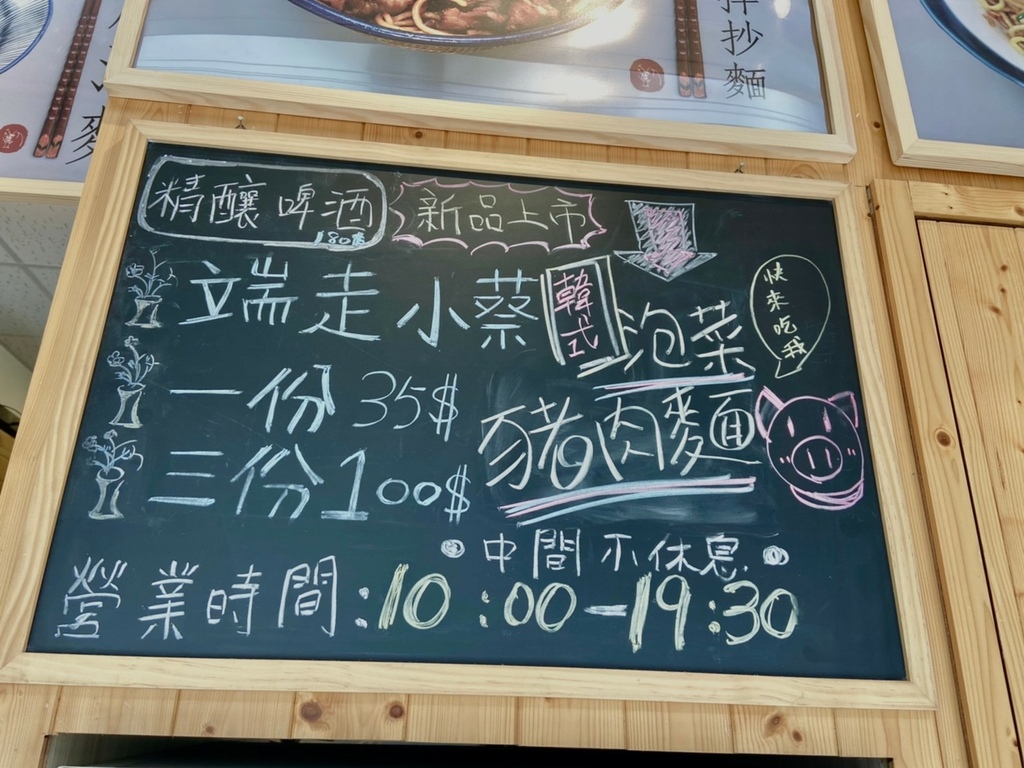 抄麵
精釀啤酒
180元
新品上市
端走小菜
韓式
泡菜
豬肉麵
快來吃我
一份 35$
三份 100$
中間不休息
營業時間:10:00-19:30